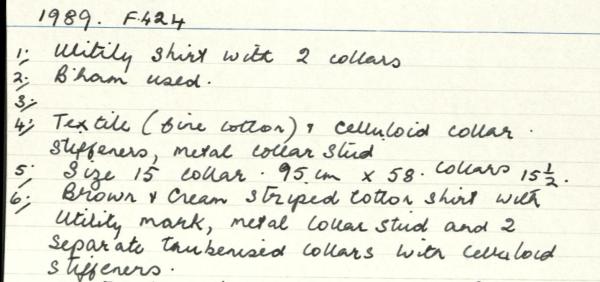 1989. F.424
1; Utility shirt with 2 collars
2; B'ham used.
3;
4; Textile (fine cotton) & celluloid collar.
stiffeners, metal collar stud
5; Size 15 collar. 95 cm x 58. collars 15½.
6; Brown & Cream striped cotton shirt with
Utility mark, metal collar stud and 2
separate Trubenised collars with celluloid
stiffeners.